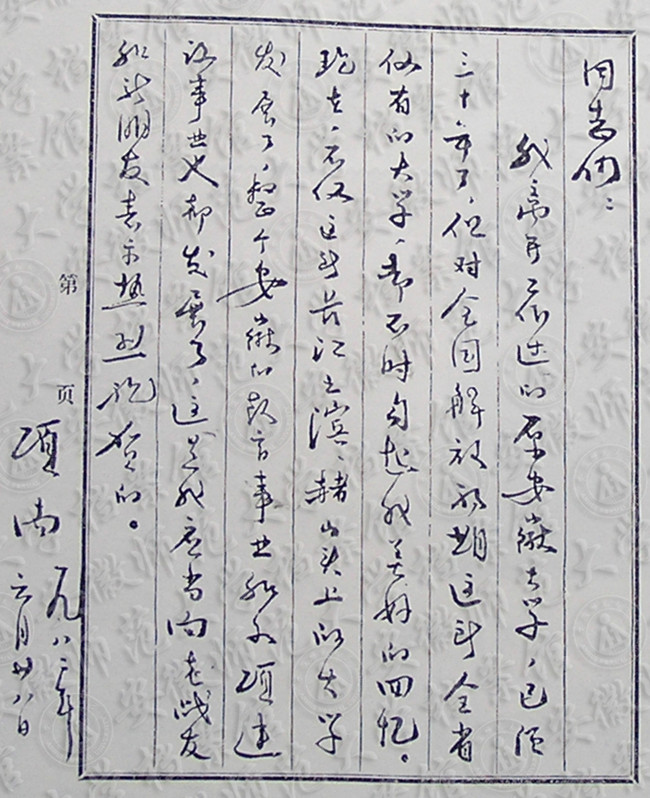 同志们:
我离开工作过的原安徽大学,已经
三十年了,但对全国解放初期这所全省
仅有的大学,却不时勾起我美好的回忆。
现在,不仅这所长江之滨、赭山头上的大学
发展了,整个安徽的教育事业和各项建
设事业也都发展了,这是我应当向老战友
和新朋友表示热烈祝贺的。
第 页
项南
一九八二年
六月廿八日